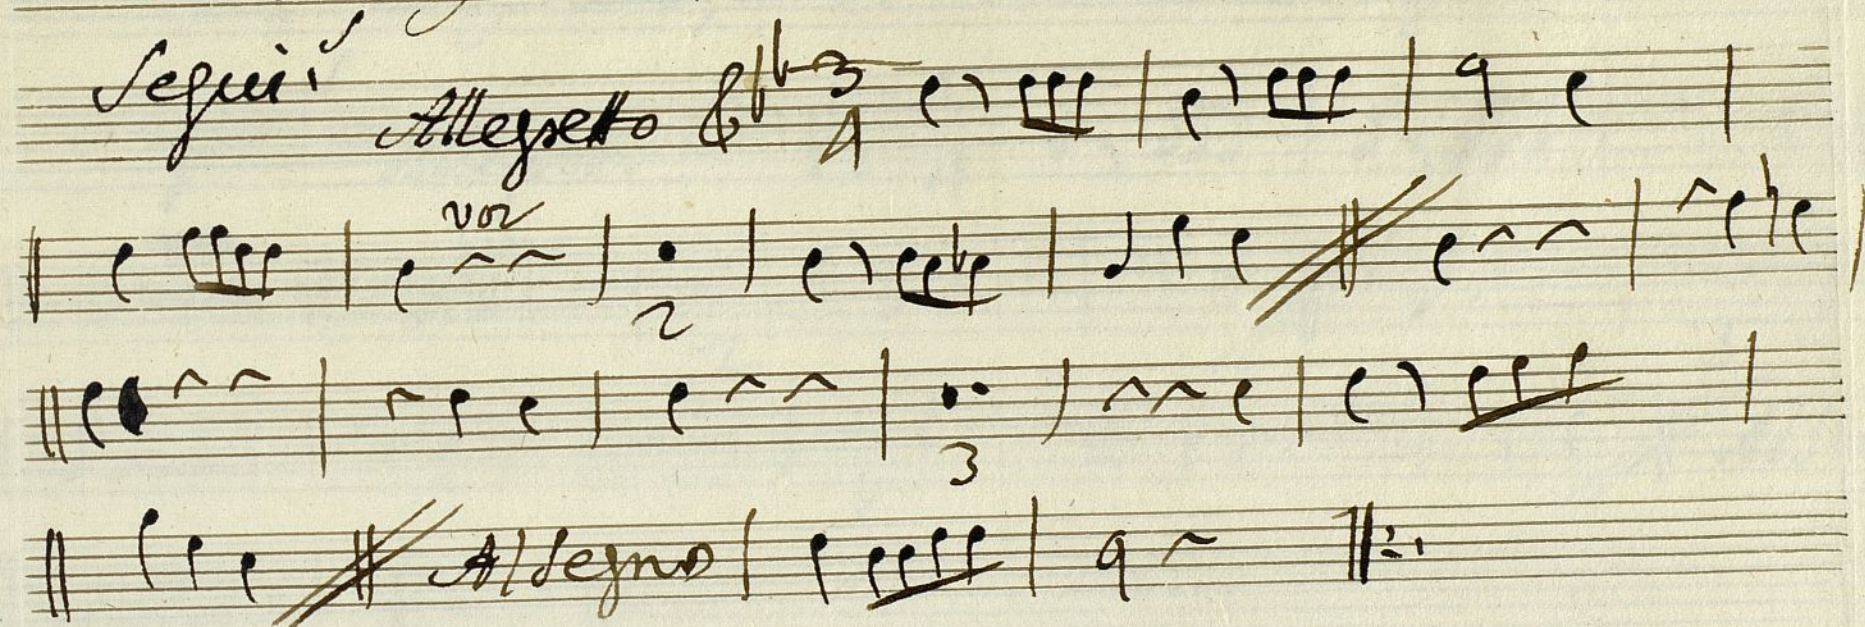 Segui.s
Allegretto 3
4
voz
2
3
Al Segno